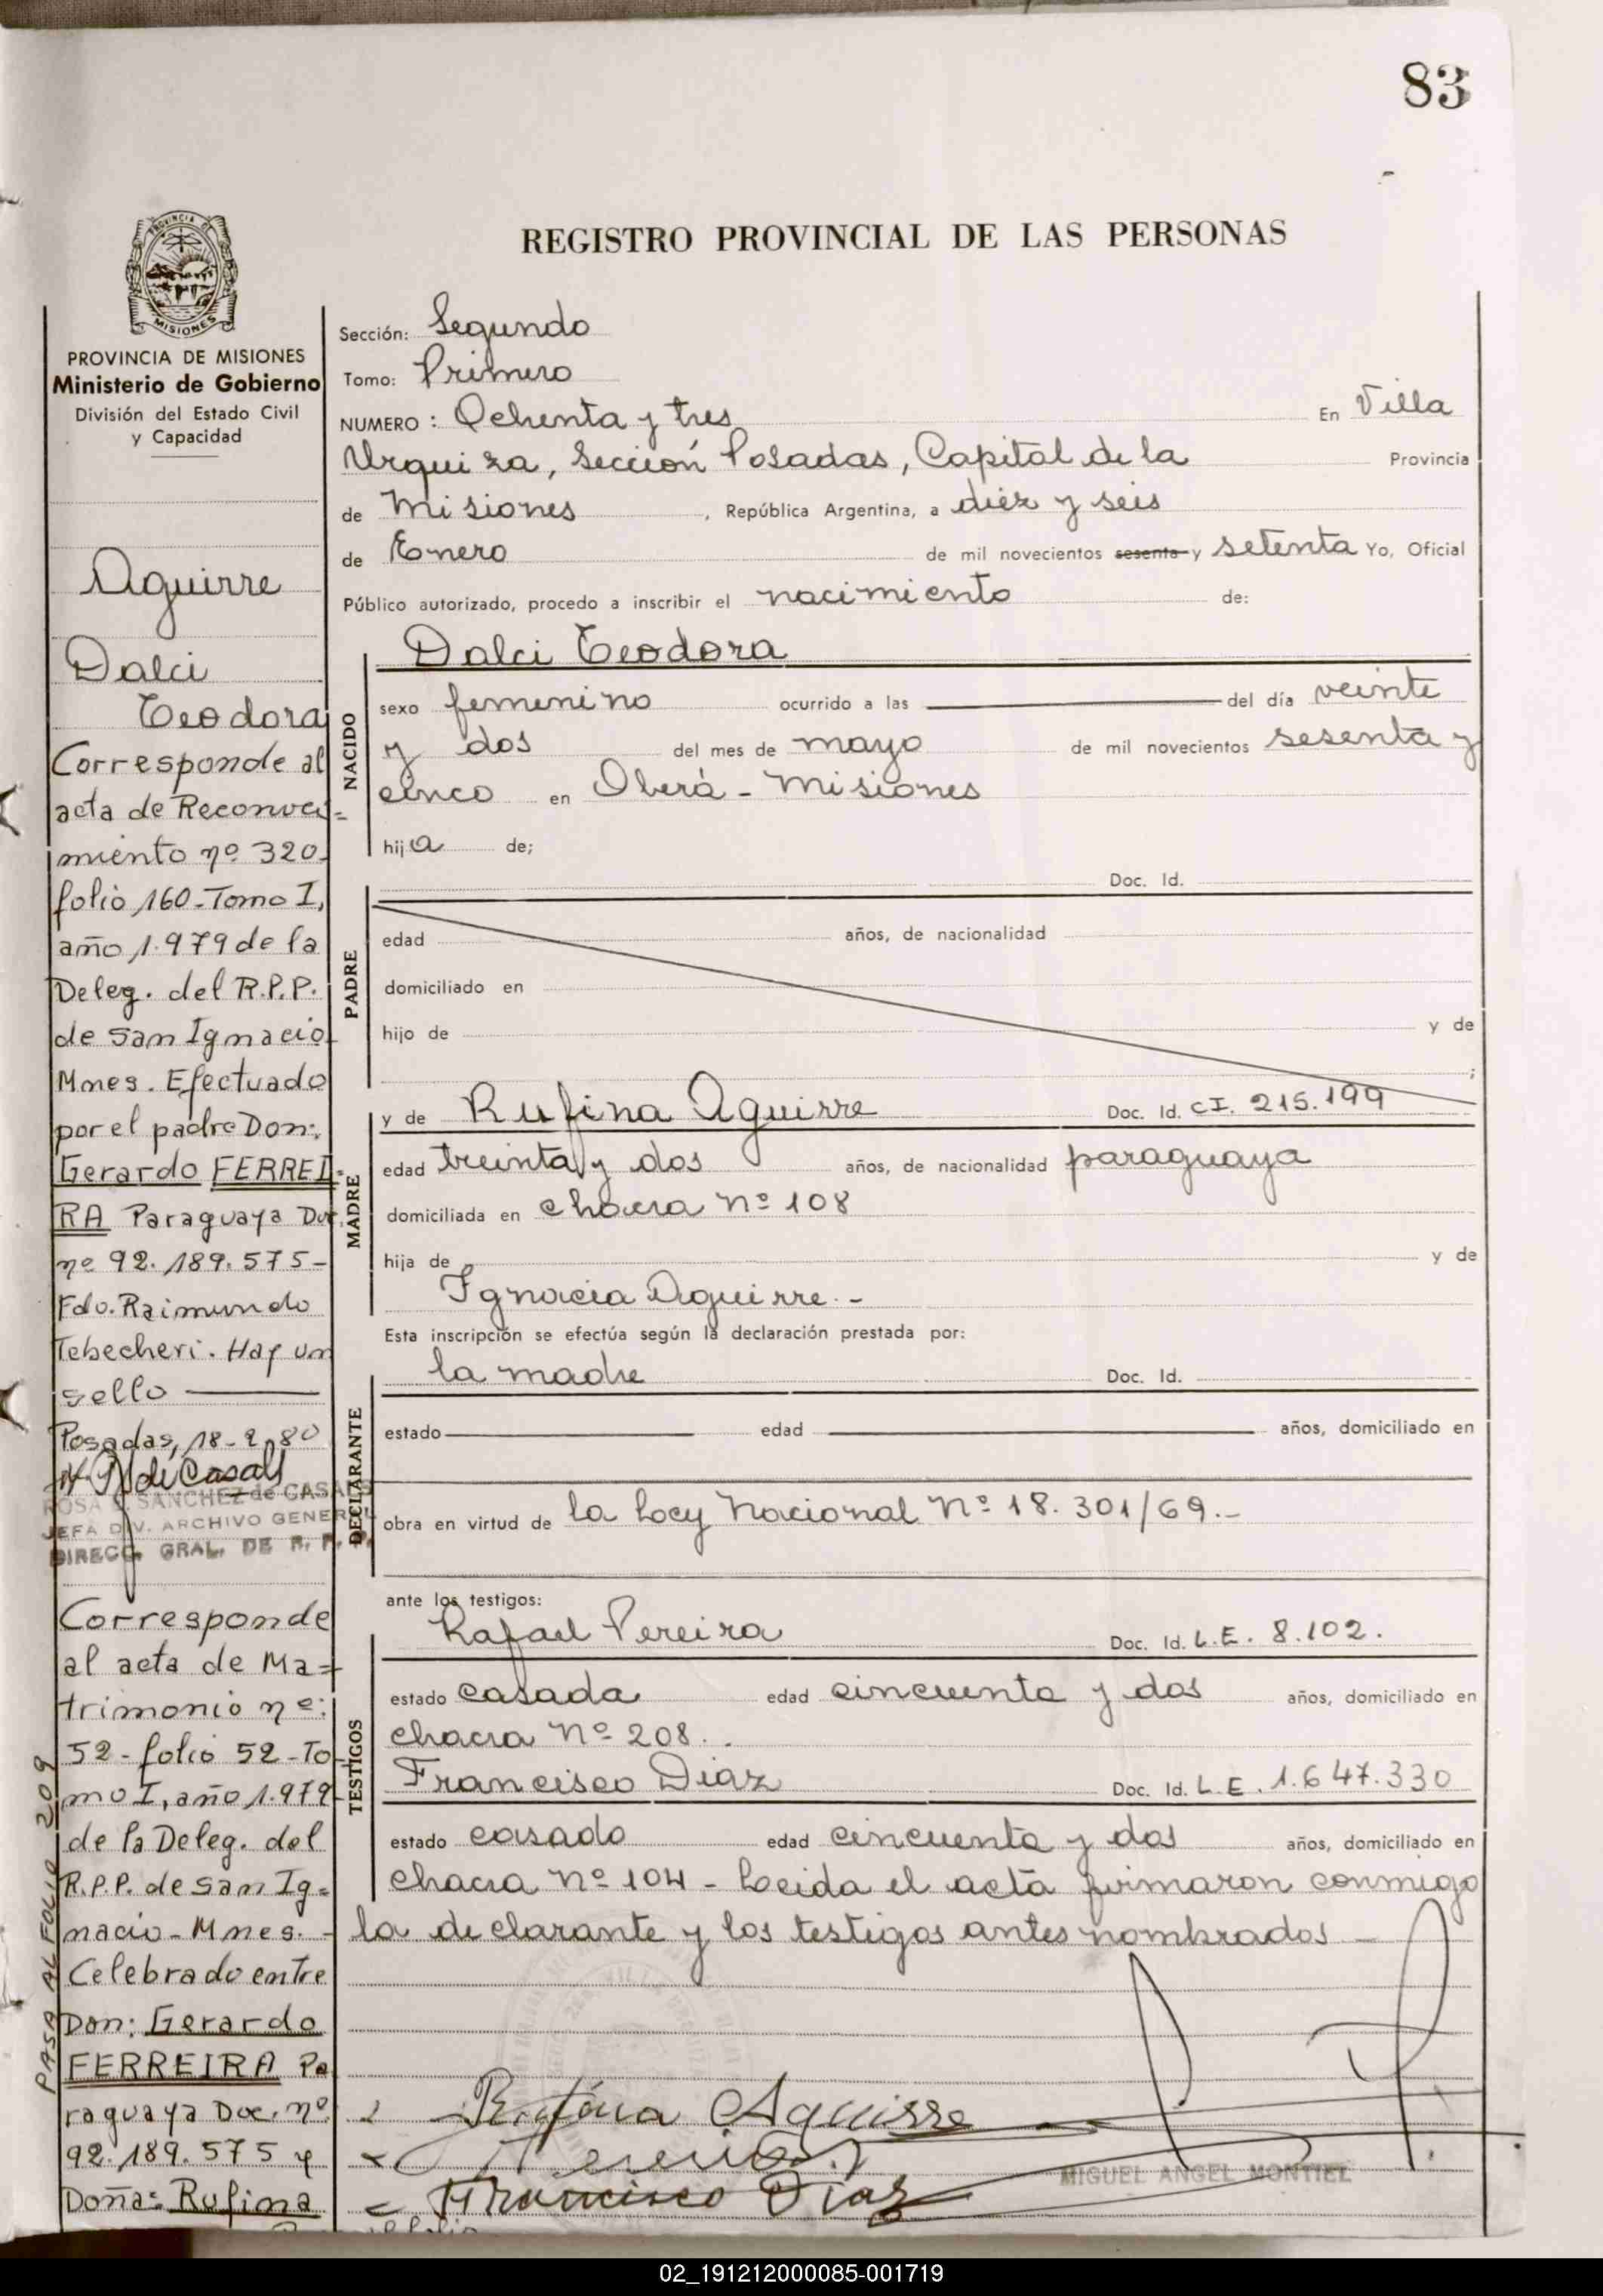 83
REGISTRO PROVINCIAL DE LAS PERSONAS
PROVINCIA DE MISIONES
Ministerio de Gobierno
División del Estado Civil
y Capacidad
Aguirre
Dalci
Teodora
Corresponde al
acta de Reconoci=
miento nº 320-
folio 160-Tomo I,
año 1.979 de la
Deleg. del R.P.P.
de San Ignacio
Mnes. Efectuado
por el padre Don:
Gerardo FERREI=
RA Paraguaya Doc.
nº 92.189.575-
Fdo. Raimundo
Tebecheri. Hay un
sello
Posadas, 18-2-80
ROSA SANCHEZ de CASALS
JEFA DIV. ARCHIVO GENERAL
DIRECC. GRAL. DE R. P. P.
Corresponde
al acta de Ma=
trimonio nº:
52-folio 52-To
mo I, año 1.979
de la Deleg. del
R.P.P. de San Ig=
nacio-Mnes.-
Celebrado entre
Don: Gerardo
FERREIRA Pa
raguaya Doc. nº
92.189.575 y
Doña: Rufina
PASA AL FOLIO 209
Sección: Segundo
Tomo: Primero
NUMERO : Ochenta y tres En Villa
Urquiza, Sección Posadas, Capital de la Provincia
de Misiones , República Argentina, a diez y seis
de Enero de mil novecientos sesenta y setenta Yo, Oficial
Público autorizado, procedo a inscribir el nacimiento de:
NACIDO
Dalci Teodora
sexo femenino ocurrido a las del día veinte
y dos del mes de mayo de mil novecientos sesenta y
cinco en Oberá - Misiones
hija de;
PADRE
Doc. Id.
edad años, de nacionalidad
domiciliado en
hijo de y de
;
MADRE
y de Rufina Aguirre Doc. Id. CI. 215.199
edad treinta y dos años, de nacionalidad paraguaya
domiciliada en chacra Nº 108
hija de y de
Ignacia Aguirre.-
Esta inscripción se efectúa según la declaración prestada por:
DECLARANTE
la madre Doc. Id.
estado edad años, domiciliado en
obra en virtud de la Ley Nacional Nº 18.301/69.-
ante los testigos:
TESTIGOS
Rafael Pereira Doc. Id. L.E. 8.102.
estado casada edad cincuenta y dos años, domiciliado en
chacra Nº 208.
Francisco Diaz Doc. Id. L.E. 1.647.330
estado casado edad cincuenta y dos años, domiciliado en
chacra Nº 104 - Leida el acta firmaron conmigo
la declarante y los testigos antes nombrados -
Rufina Aguirre
Francisco Diaz
MIGUEL ANGEL MONTIEL
02_191212000085-001719